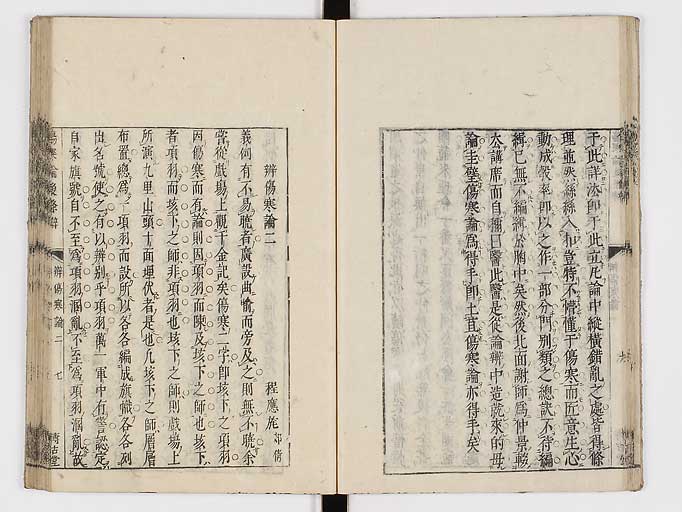 于此詳法即于此立凡論中縱橫錯亂之處皆得條
理並然絲絲入扣豈特不懵懂于傷寒而匠意生心
動成彀率即以之作一部分門別類之總訣不待編
緝已無不編緝於胸中矣然後北面謝師爲仲景
去講席而自稱曰醫此醫是從論辨中造就來的毋
論圭璧傷寒論爲得手即土直傷寒論亦得手矣
辨傷寒論二
程應旄郊倩
義何有不易曉者廣設曲喻而旁及之則無不曉余
嘗從戲場上觀千金記矣傷寒二字即垓下之項羽
因傷寒而有論則因項羽而陳及垓下之師也垓下
者項羽而垓下之師非項羽也垓下之師則戲場上
所演九里山頭十面埋伏者是也凡垓下之師層層
布置總爲一項羽而設所以各各編成旗幟各各列
出名號使之有以辨別乎項羽萬一軍中有誓認定
自家旗號自不至爲項羽溷亂不至爲項羽溷亂故
傷寒論後條辨
辨傷寒論二
七